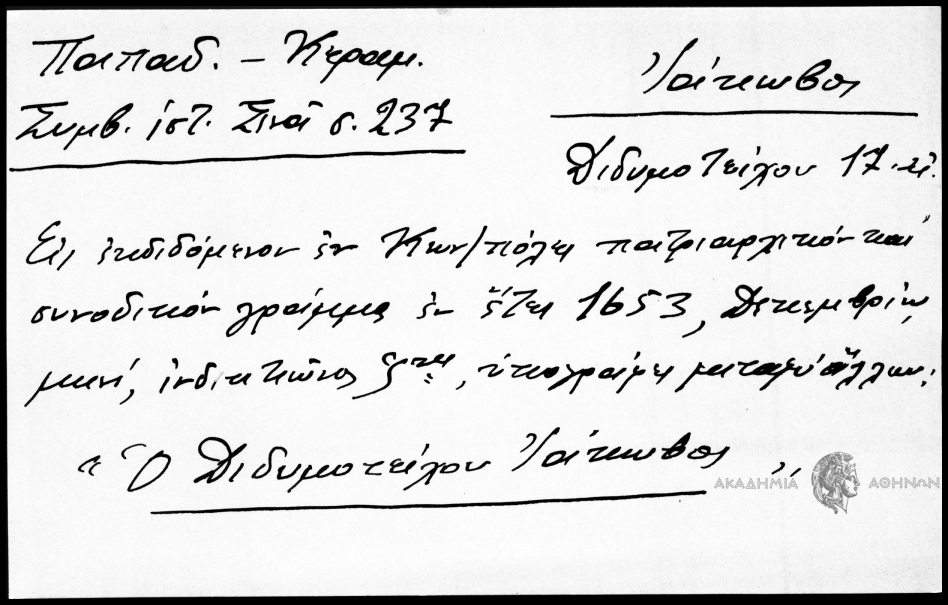 Παπαδ. – Κεραμ.
Συμβ. ἱστ. Σινᾶ σ. 237
Ἰάκωβος
Διδυμοτείχου 17. αἰ.
Εἰς ἐκδιδόμενον ἐν Κων/πόλει πατριαρχικόν καί
συνοδικόν γράμμα ἐν ἔτει 1653, Δεκεμβρίῳ
μηνί, ἰνδικτιῶνος ζ, ὑπογράφει μεταξύ ἄλλων:
"Ὁ Διδυμοτείχου Ἰάκωβος"
ΑΚΑΔΗΜΙΑ ΑΘΗΝΩΝ